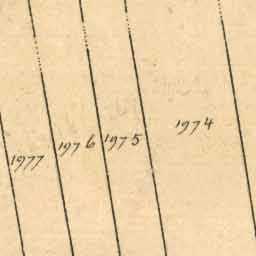 1977
1976
1975
1974